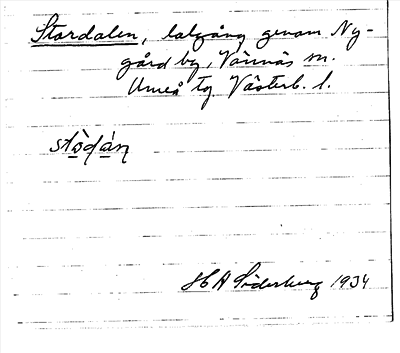 Stordalen, dalgång genom Ny-
gård by, Vännäs sn.
Umeå tg. Västerb. l.
H A Söderberg 1934